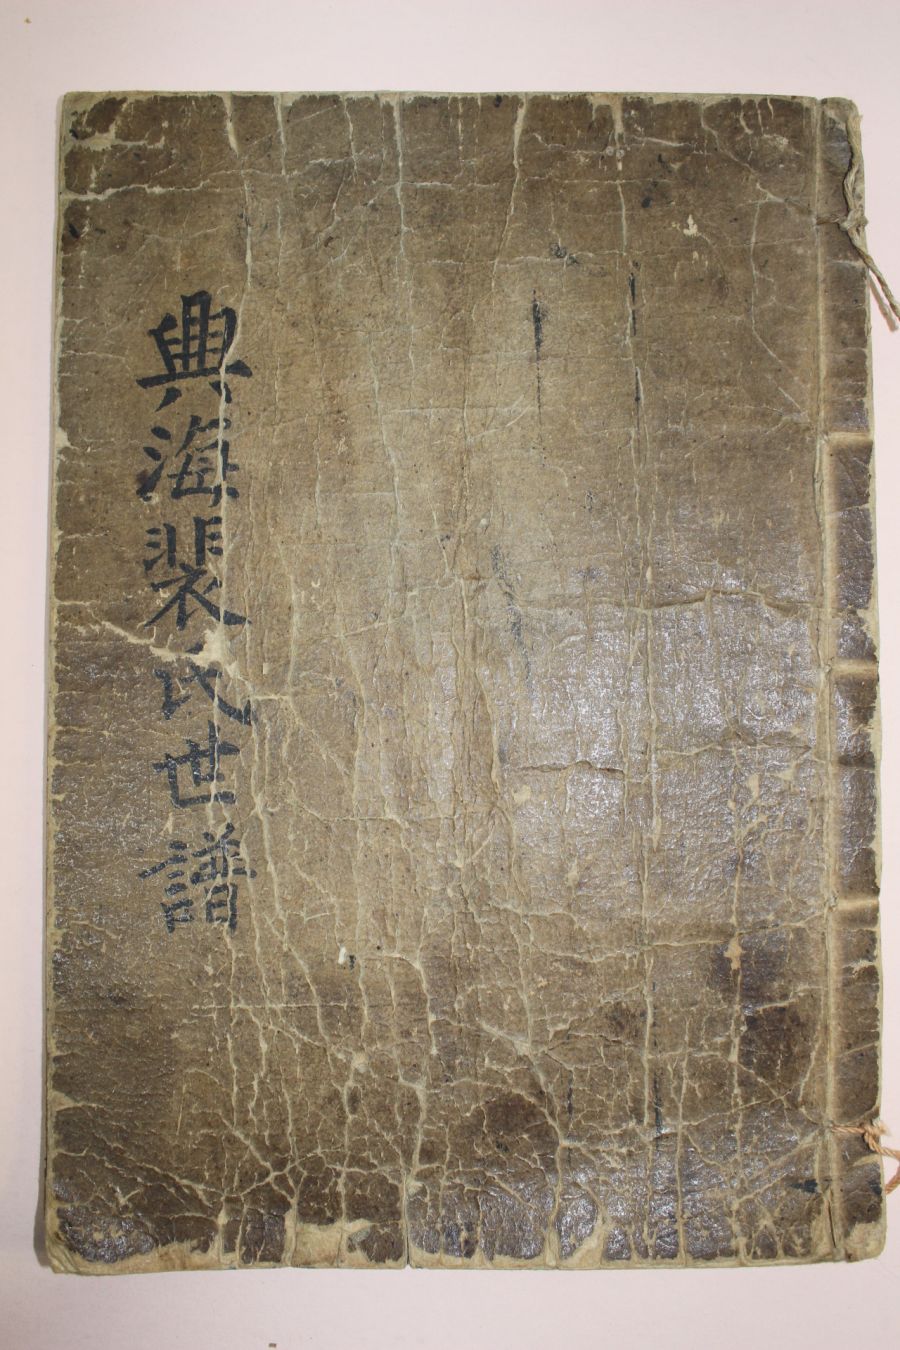 興海裴氏世譜